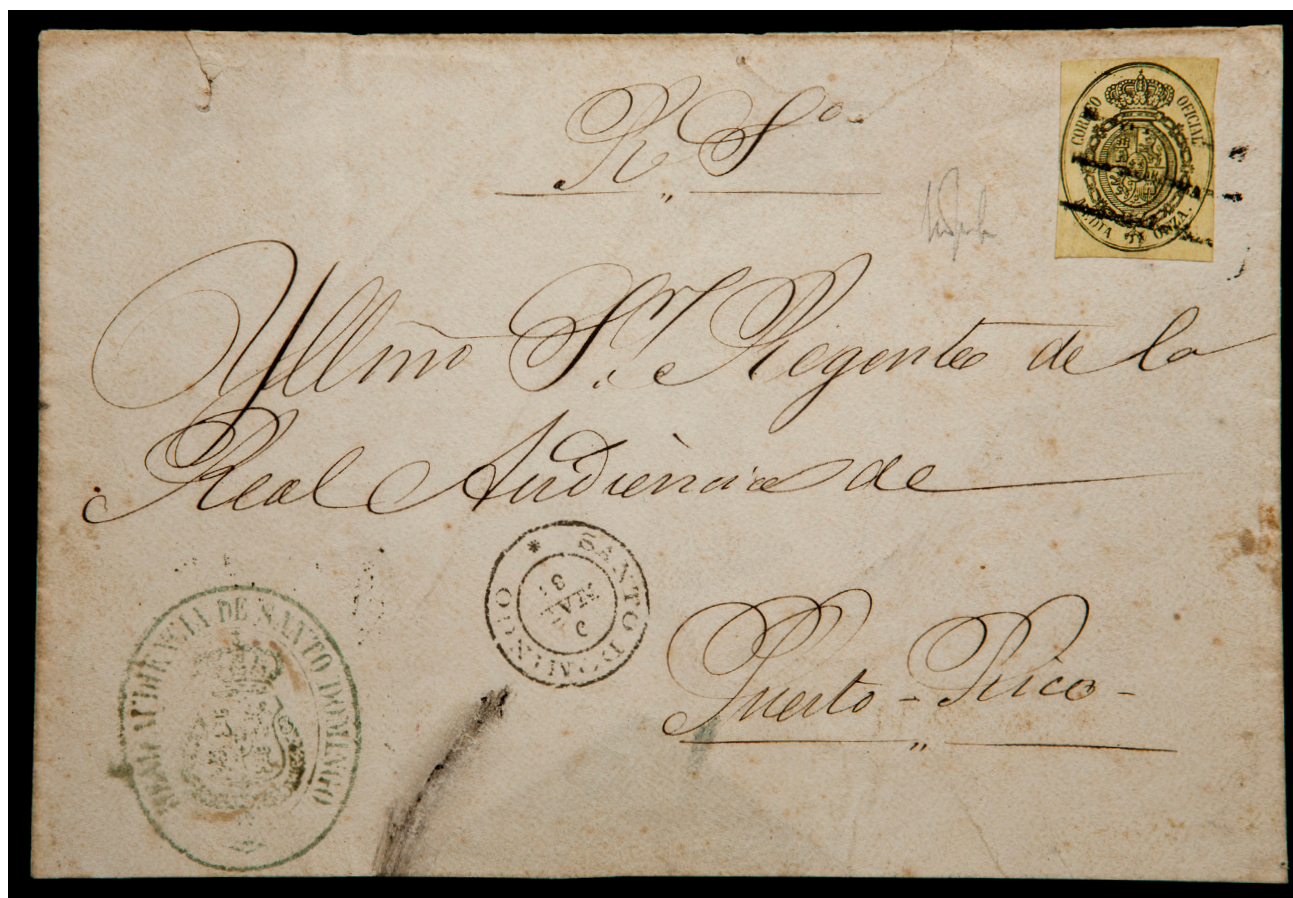 R. Sª
CORREO OFICIAL
MEDIA ONZA.
Yllmo Sr. Regente de la
Real Audiencia de
SANTO DOMINGO
MAR
REAL AUDIENCIA DE SANTO DOMINGO
Puerto-Rico-